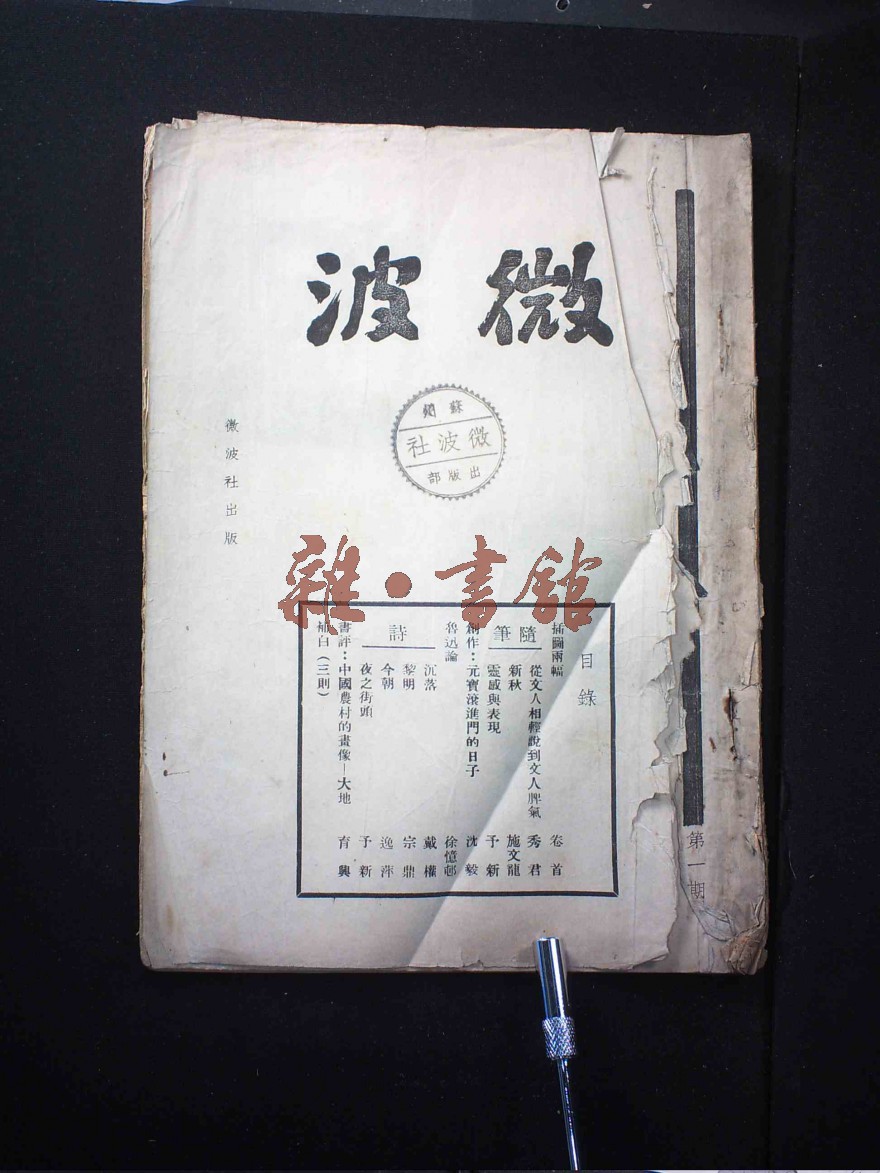 微波
蘇州
微波社
出版部
微波社出版
第一期
雜·書館
目錄
插圖兩幅 卷首
隨筆
從文人相輕說到文人脾氣 秀君
新秋 施文龍
靈感與表現 予新
創作：元寶滾進門的日子 沈毅
魯迅論 徐憶邨
詩
沉落 戴權
黎明 宗鼎
今朝 逸萍
夜之街頭 予新
書評：中國農村的畫像—大地 育興
補白（三則）